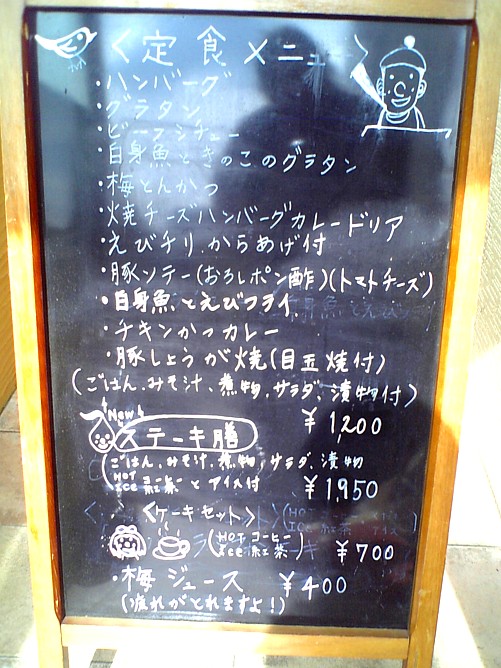 ＜定食メニュー＞
・ハンバーグ
・グラタン
・ビーフシチュー
・白身魚ときのこのグラタン
・梅とんかつ
・焼チーズハンバーグカレードリア
・えびチリ からあげ付
・豚ソテー(おろしポン酢)(トマトチーズ)
・白身魚とえびフライ
・チキンかつカレー
・豚しょうが焼(目玉焼付)
(ごはん、みそ汁、煮物、サラダ、漬物付)
¥1,200
New
ステーキ膳
(ごはん、みそ汁、煮物、サラダ、漬物
HOT コーヒー
ICE 紅茶 とアイス付
¥1,950
＜ケーキセット＞
(HOT コーヒー
Ice 紅茶)
¥700
・梅ジュース ¥400
(疲れがとれますよ!)